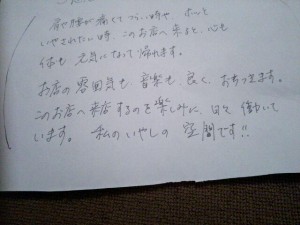 肩や腰が痛くてつらい時や ホッと
いやされたい時、このお店へ来ると、心も
体も 元気になって帰れます。
お店の雰囲気も 音楽も 良く、おちつきます。
このお店へ来店するのを楽しみに、日々 働いて
います。 私のいやしの 空間です!!